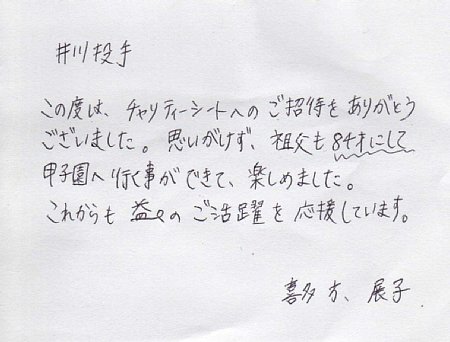 井川投手
この度は、チャリティーシートへのご招待をありがとう
ございました。思いがけず、祖父も84才にして
甲子園へ行く事ができて、楽しめました。
これからも益々のご活躍を応援しています。
喜多 方、展子